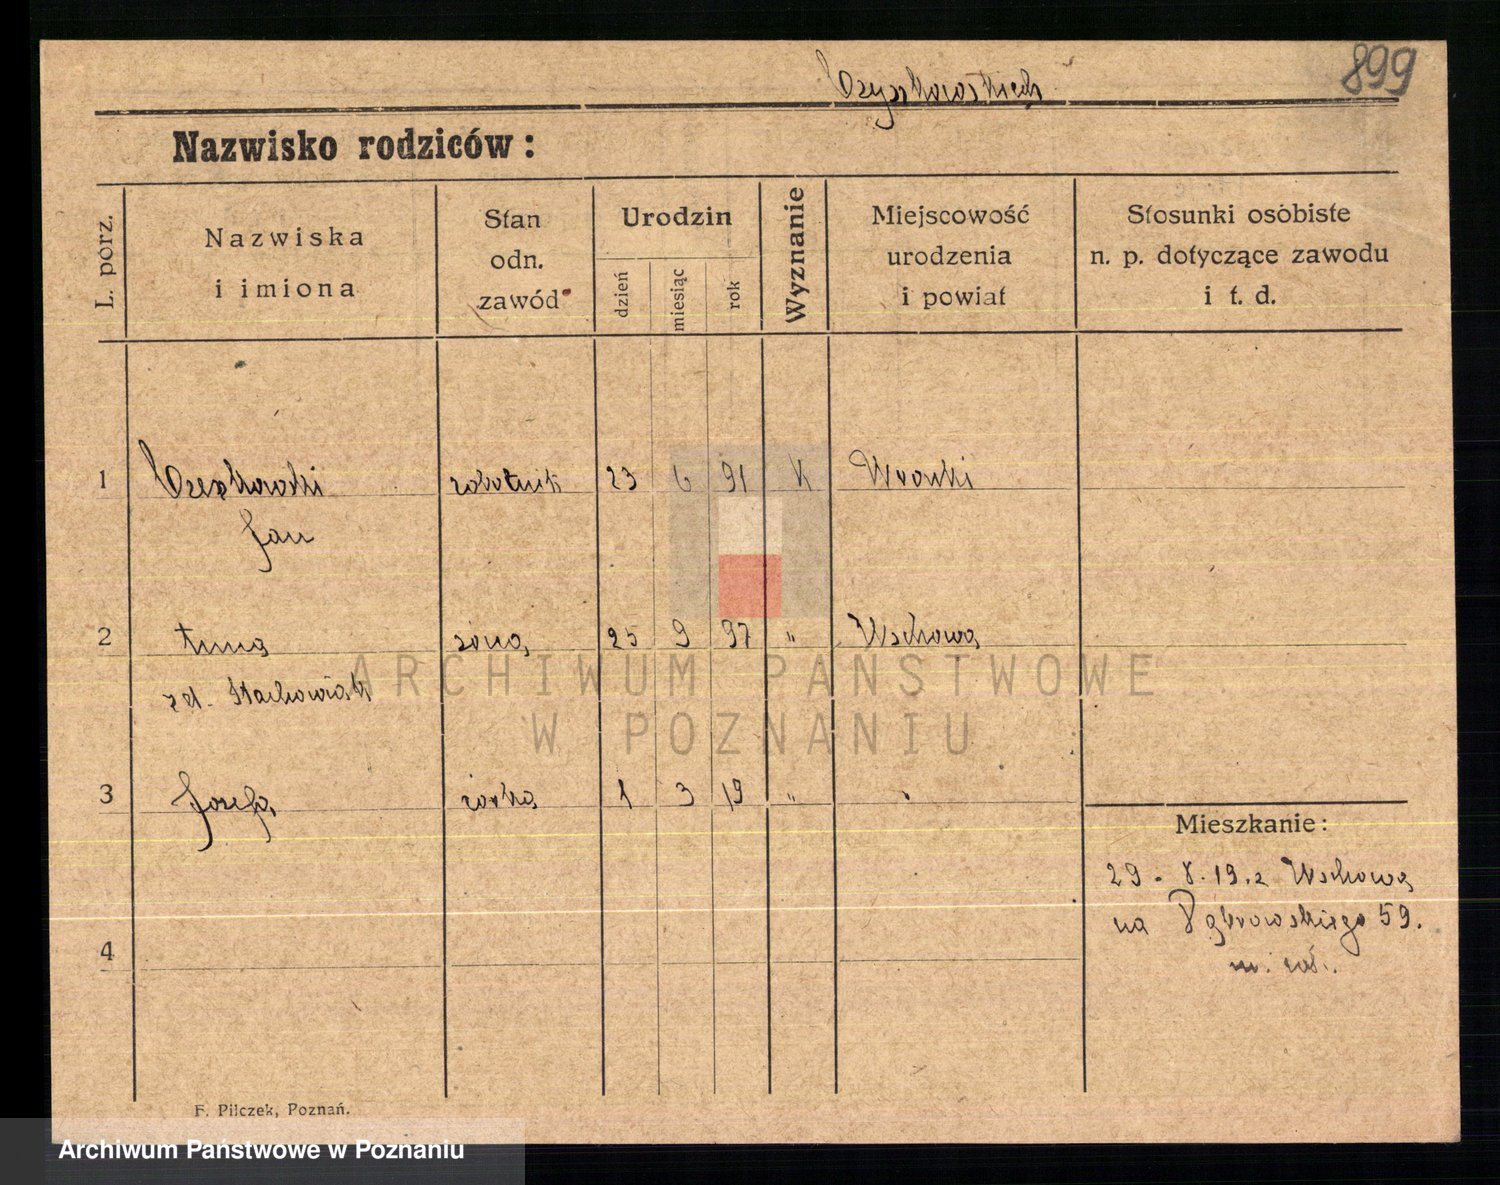 899
Nazwisko rodziców:
L. porz.
Nazwiska
i imiona
Stan
odn.
zawód
Urodzin
dzień
miesiąc
rok
Wyznanie
Miejscowość
urodzenia
i powiat
Stosunki osobiste
n. p. dotyczące zawodu
i t. d.
1 robotnik 23 6 91 K Wronki
Jan
2 Anna żona 25 9 97 " Wschowa
zd. Stachowiak
3 Józefa córka 1 3 19 " "
Mieszkanie:
29. 8. 19. z Wschowa
na Dąbrowskiego 59.
4
F. Pilczek, Poznań.
ARCHIWUM PAŃSTWOWE
W POZNANIU
Archiwum Państwowe w Poznaniu